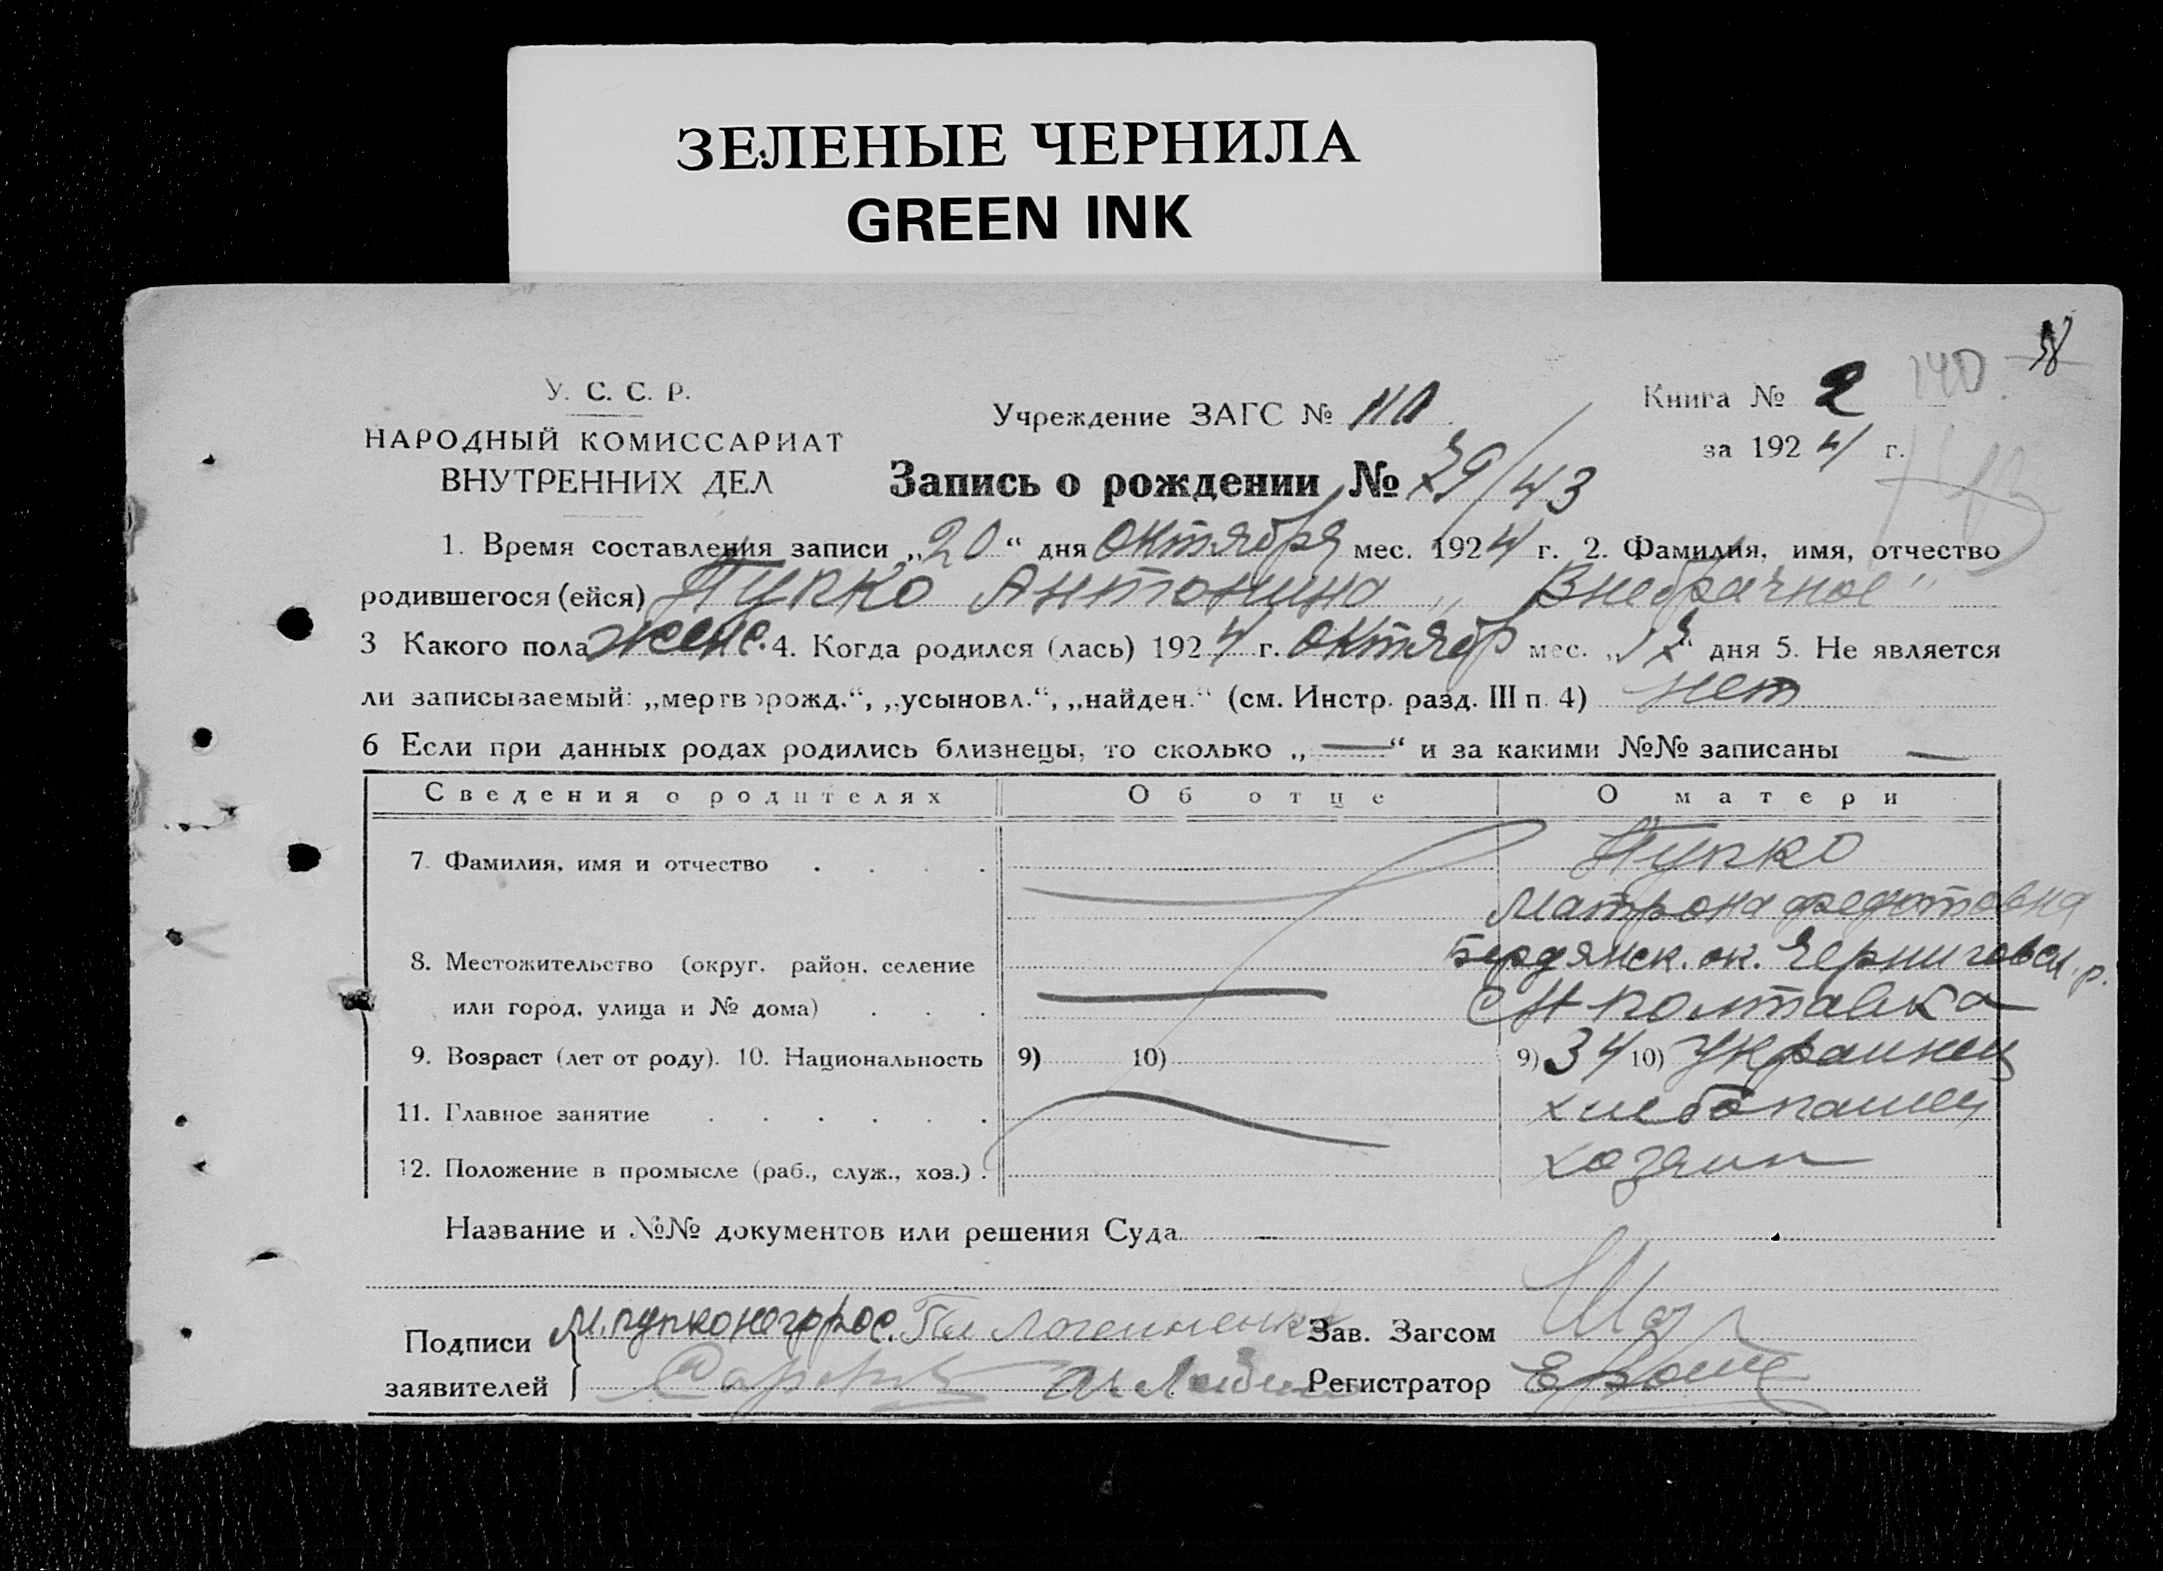 ЗЕЛЕНЫЕ ЧЕРНИЛА
GREEN INK
У. С. С. Р.
НАРОДНЫЙ КОМИССАРИАТ
ВНУТРЕННИХ ДЕЛ
Учреждение ЗАГС № 110
Книга № 2 140
за 1924 г.
Запись о рождении № 39/43
1. Время составления записи „20“ дня октября мес. 1924 г. 2. Фамилия, имя, отчество
родившегося (ейся) Пупко Антонина „Внебрачное“
3 Какого пола женс. 4. Когда родился (лась) 1924 г. октябр мес. дня 5. Не является
ли записываемый: „мертворожд.“, „усыновл.“, „найден.“ (см. Инстр. разд. III п. 4) нет
6 Если при данных родах родились близнецы, то сколько „—“ и за какими №№ записаны —
Сведения о родителях Об отце О матери
7. Фамилия, имя и отчество . . . . Пупко
Матрона Федотовна
8. Местожительство (округ, район, селение Бердянск. ок. Черниговск. р.
или город, улица и № дома) . . . Полтавка
9. Возраст (лет от роду). 10. Национальность 9) 10) 9) 34 10) Украинец
11. Главное занятие . . . . . . хлебопашец
12. Положение в промысле (раб., служ., хоз.) . хозяин
Название и №№ документов или решения Суда —
Подписи М. пупко Зав. Загсом
заявителей Регистратор